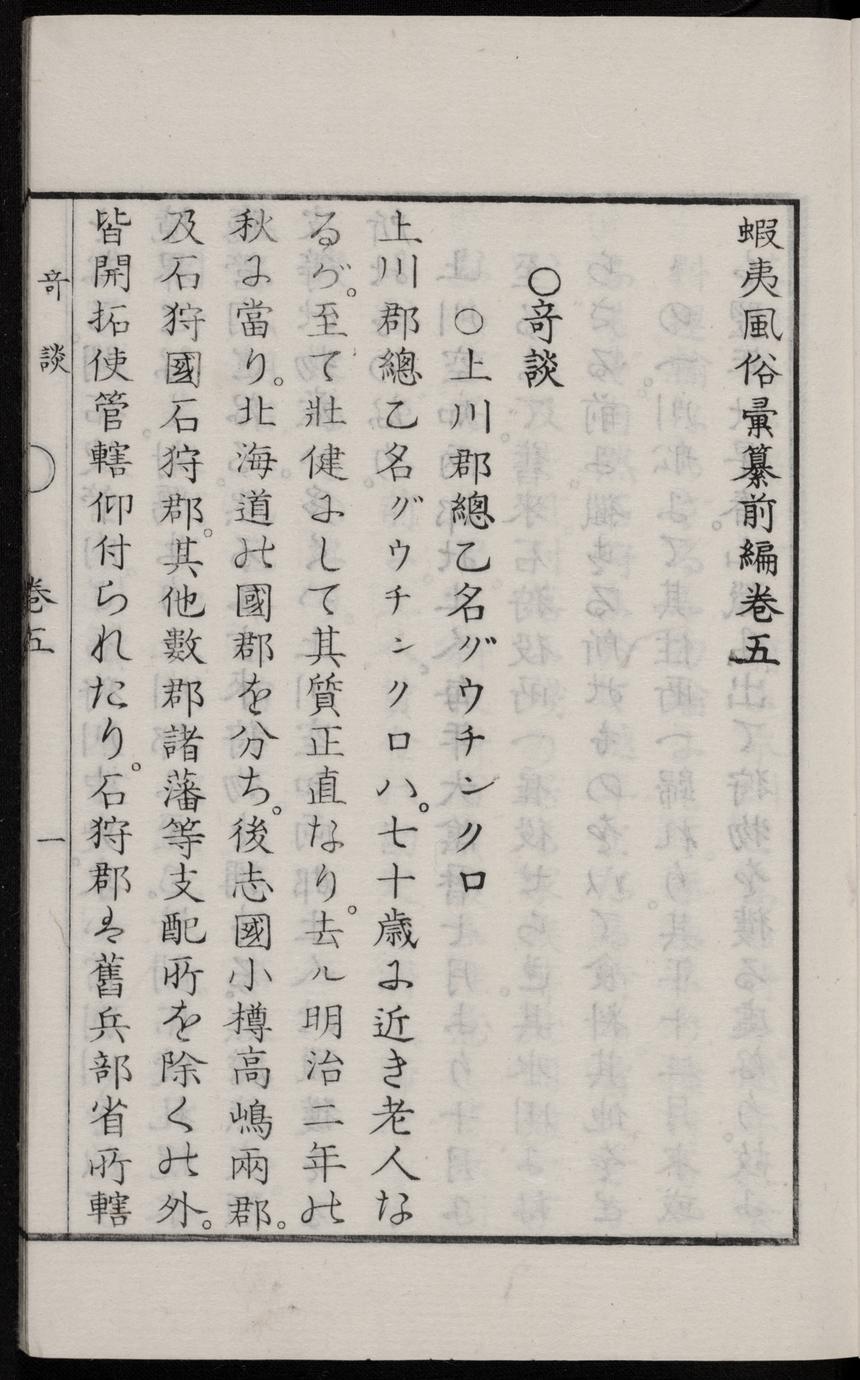 蝦夷風俗彙纂前編卷五
〇竒談
〇上川郡總乙名グウチンクロ
上川郡總乙名グウチンクロハ。七十歳に近き老人な
るが。至て壯健にして其質正直なり。去ル明治二年の
秋に當り。北海道の國郡を分ち。後志國小樽高嶋兩郡。
及石狩國石狩郡。其他數郡諸藩等支配所を除くの外。
皆開拓使管轄仰付られたり。石狩郡は舊兵部省所轄
竒談
卷五
一